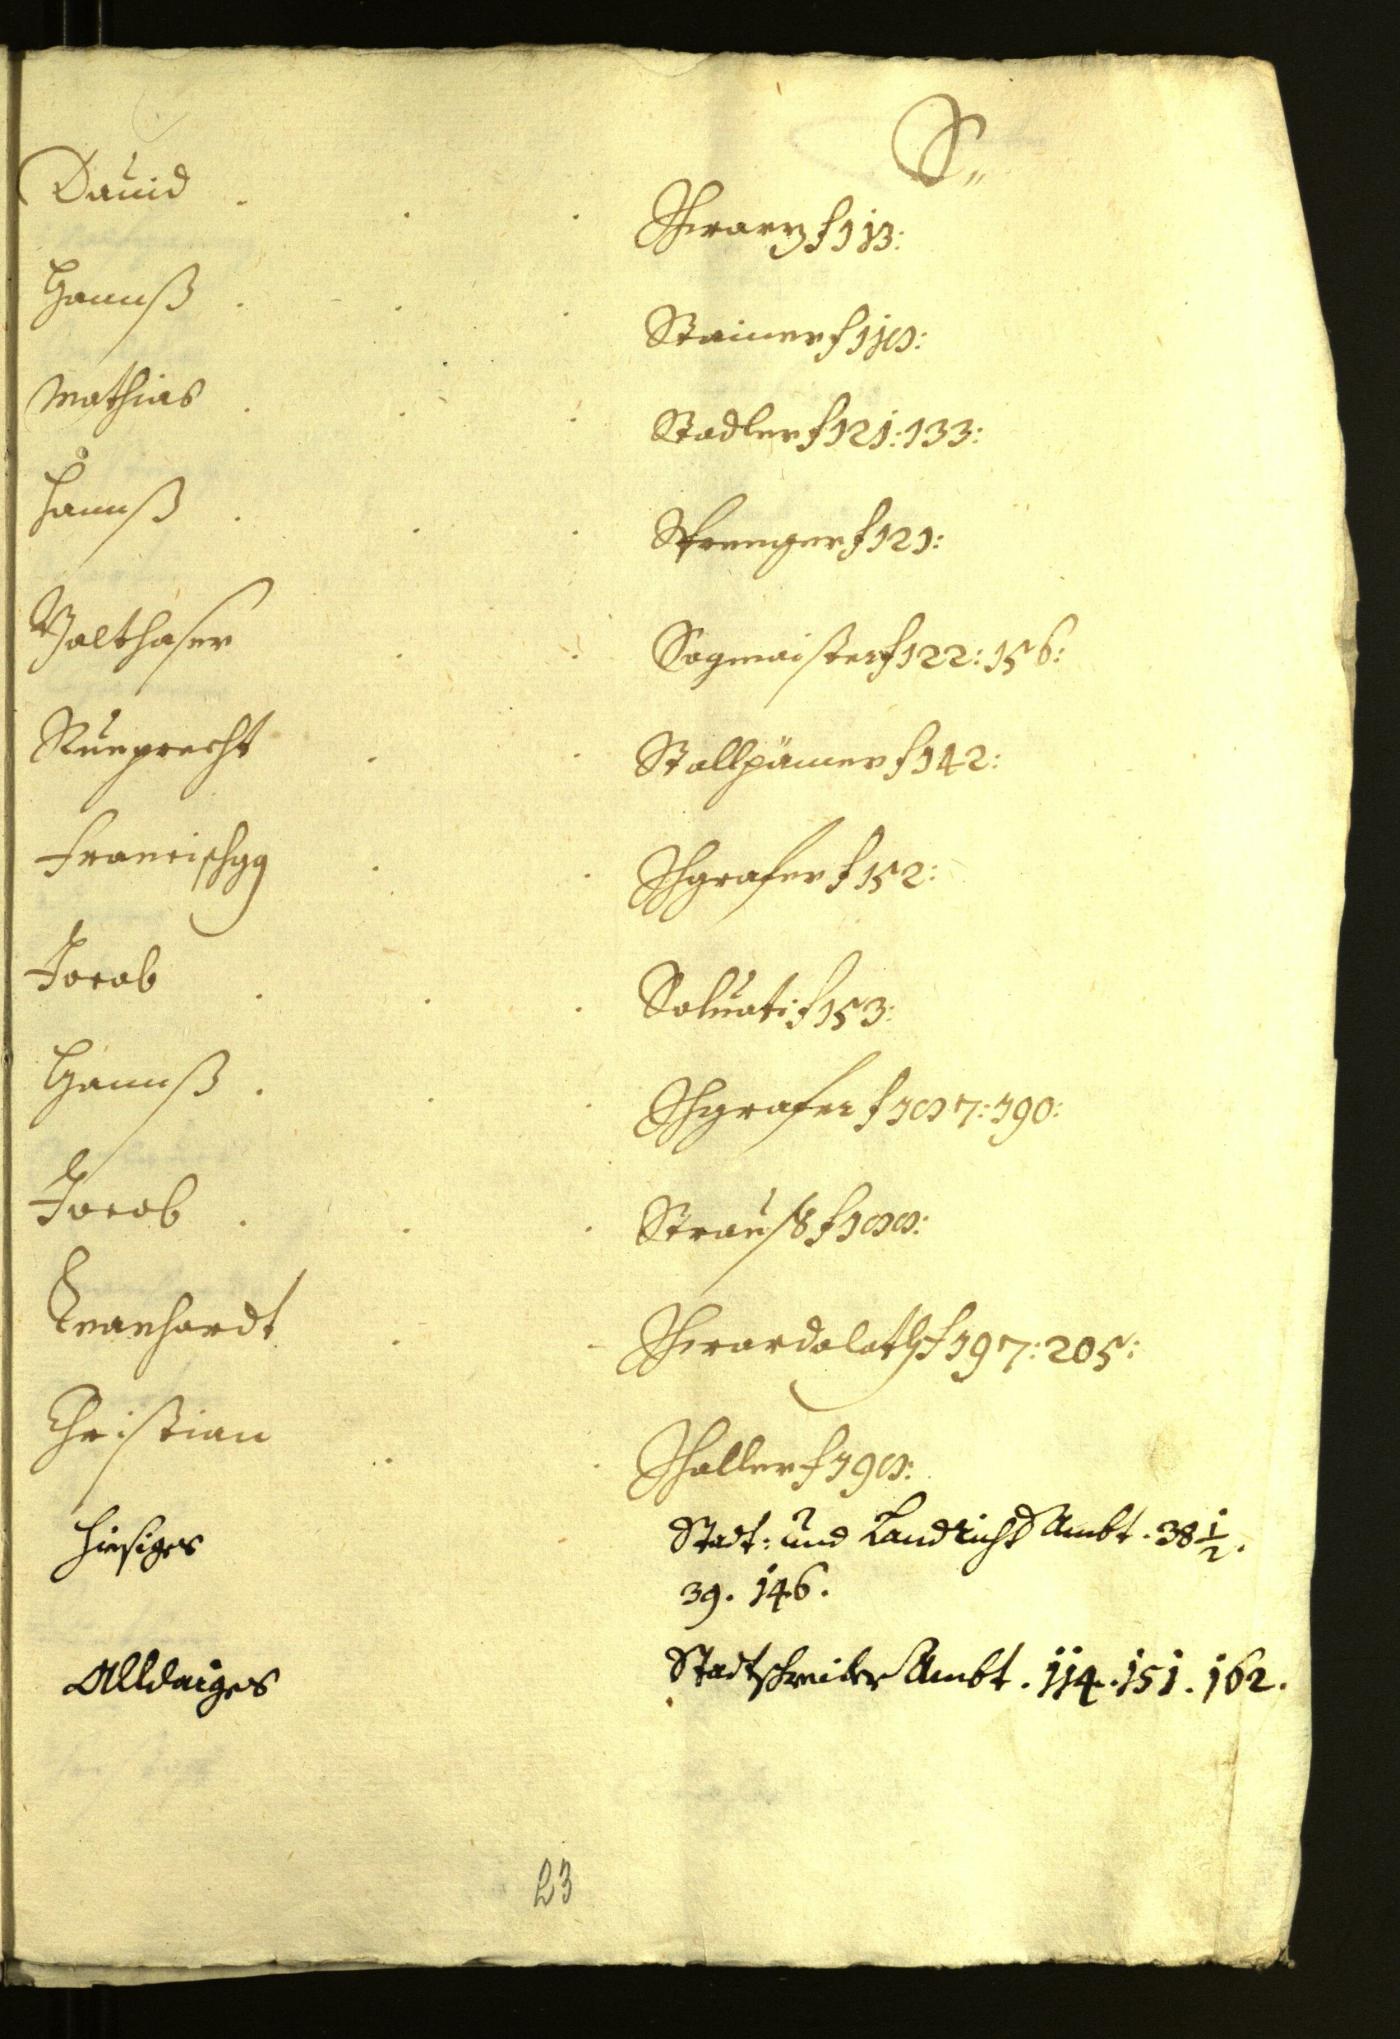 S„
Dauid . . . Schwarz f 113:
Hannß . . . Stainer f 118:
Mathias . . . Stadler f 121: 133:
Hannß . . . Sprenger f 121:
Walthaser . . Sagmaister f 122: 156:
Rueprecht . . Stallpämer f 142:
Francischgg . . Schgrafer f 152:
Jacob . . . Saluati f 153:
Hannß . . . Schgrafer f 187: 190:
Jacob . . . Strauß f 188:
Leonhardt . . f 197: 205:
Christian . . Schaller f 198:
hiesiges Stadt: und Landricht Ambt . 38 1/2 .
39 . 146 .
Alldaiges Stadtschreiber Ambt . 114 . 151 . 162 .
23